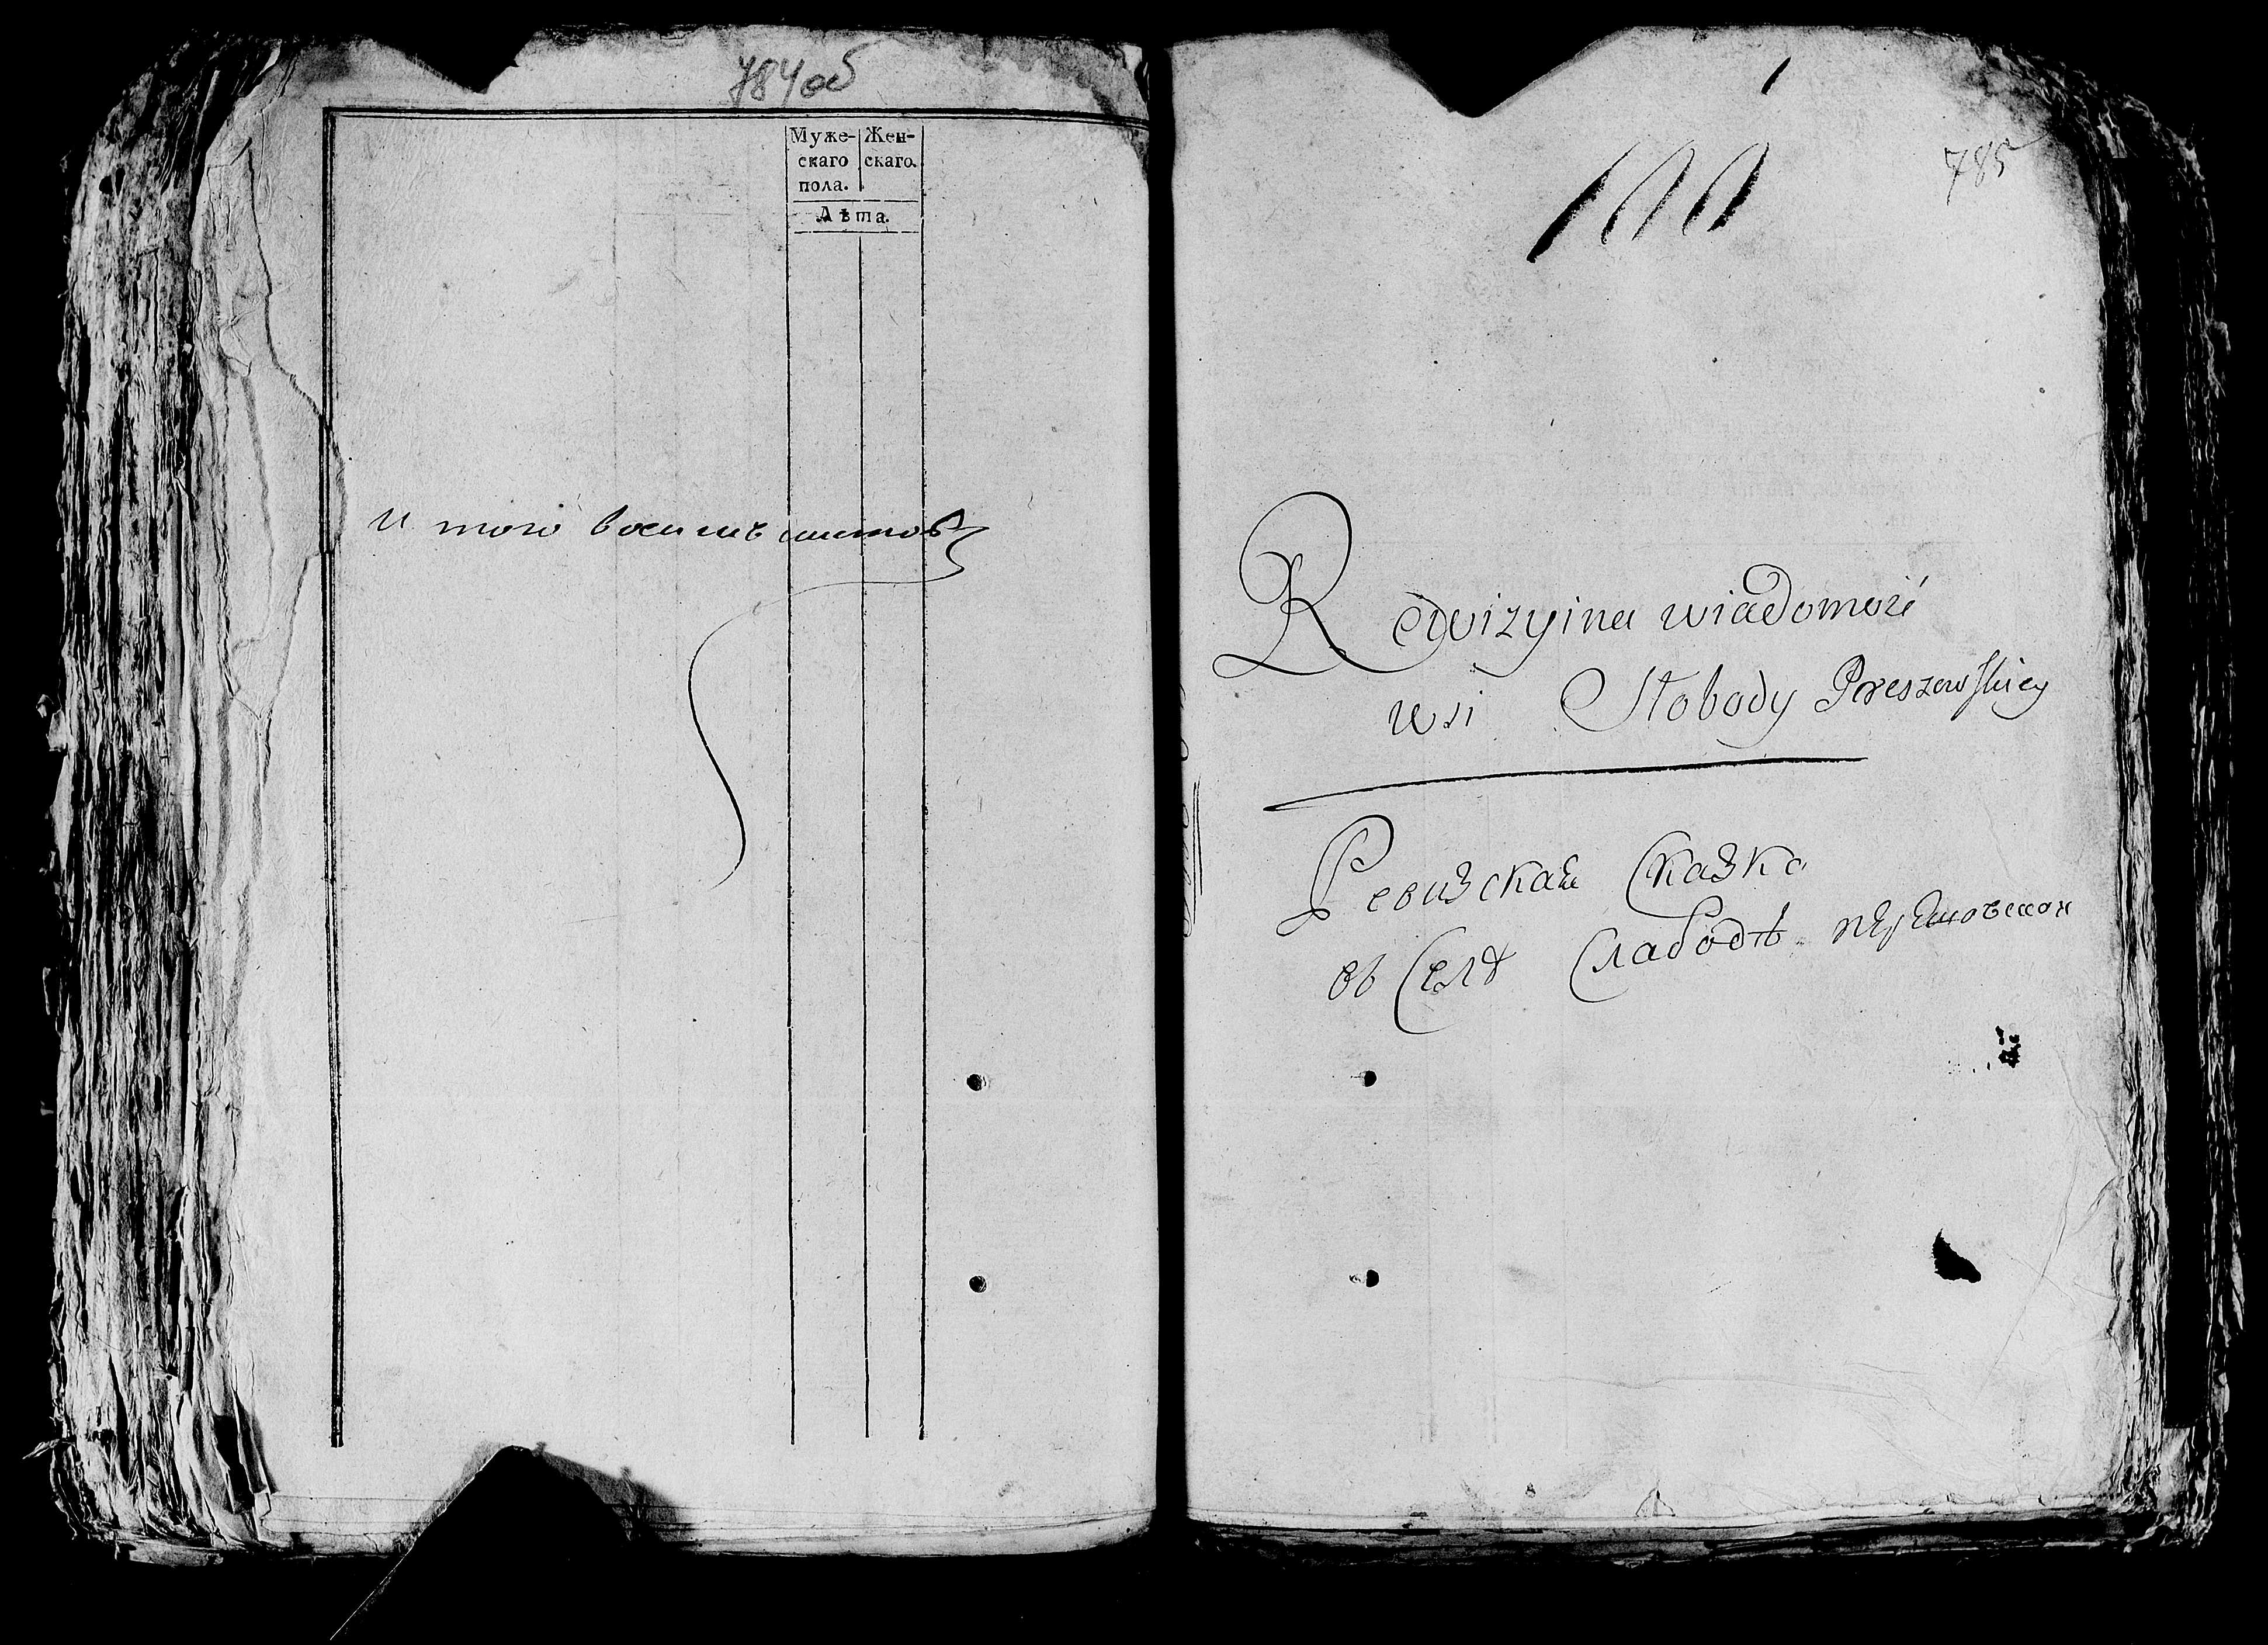 784об
Муже- Жен-
скаго скаго.
пола.
Лѣта.
и того восимъ листов
785
Rewizyina wiadomość
wsi Słobody Pereszowskiey
Ревизская Сказка
въ Селѣ Слабодѣ перешовской